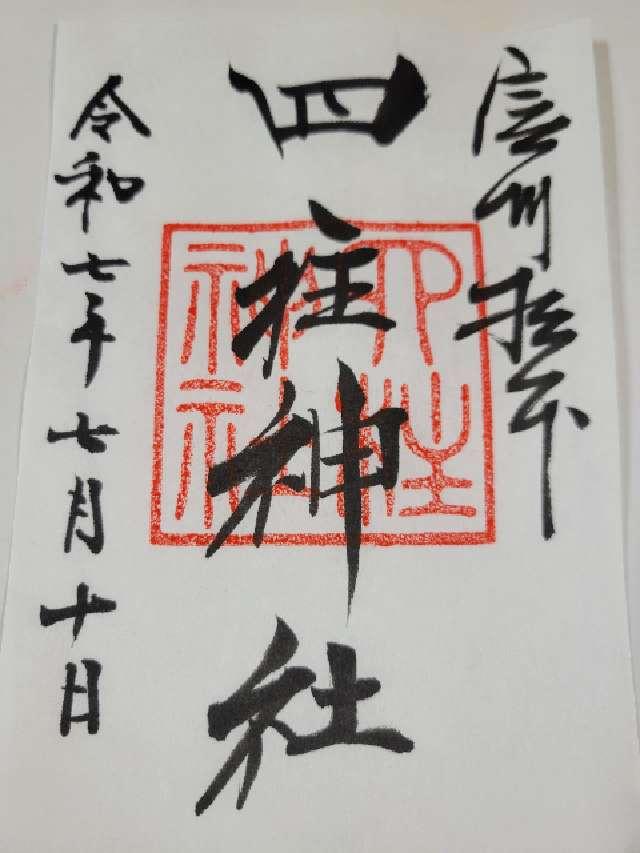 信州松本
四柱神社
四柱
神社
令和七年七月十日